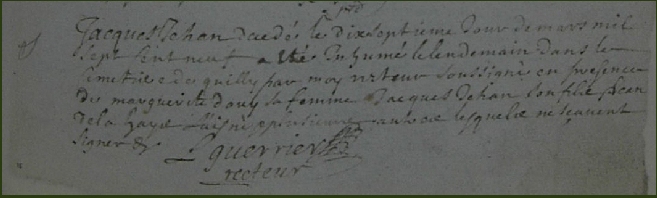 Jacques Jehan decedé le dixseptieme Jour de mars mil
sept cent neuf a été Inhumé le lendemain dans le
cimetiere du quilly par moy recteur soussigné en presence
de marguerite sa femme Jacques Jehan son fils Jean
de la haye l'aisné plusieurs autres lesquels ne scavent
signer &
guerrier
recteur